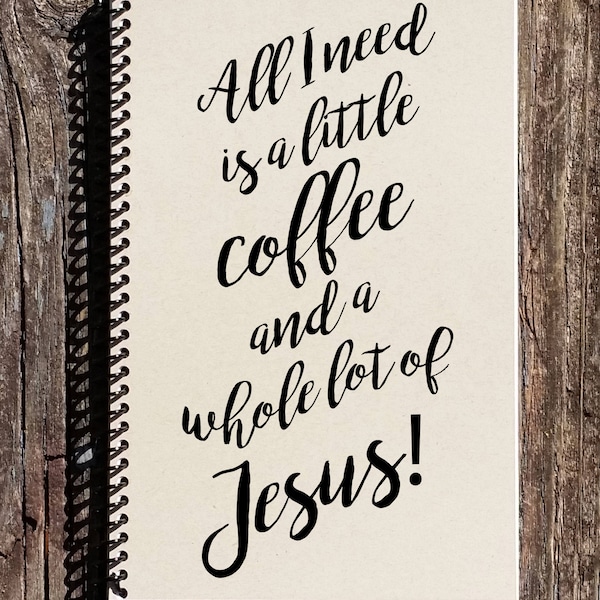 All I need
is a little
coffee
and a
whole lot of
Jesus!